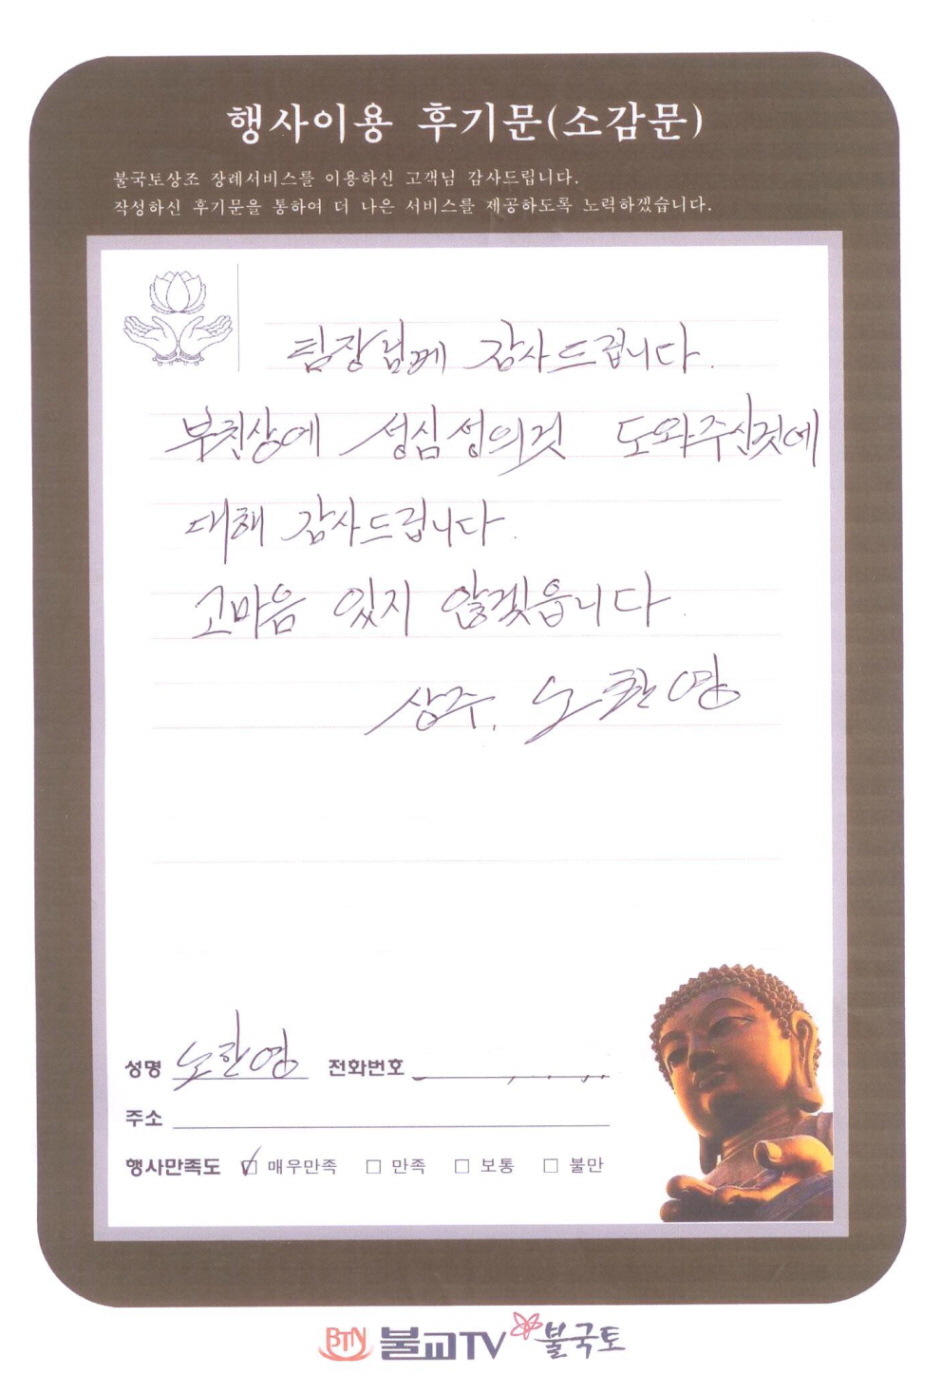 행사이용 후기문(소감문)
불국토상조 장례서비스를 이용하신 고객님 감사드립니다.
작성하신 후기문을 통하여 더 나은 서비스를 제공하도록 노력하겠습니다.
팀장님께 감사드립니다.
부친상에 성심성의것 도와주신것에
대해 감사드립니다.
고마음 잊지 않겠읍니다.
상주, 노환영
성명 노환영 전화번호
주소
행사만족도 매우만족 만족 보통 불만
BTN 불교TV 불국토